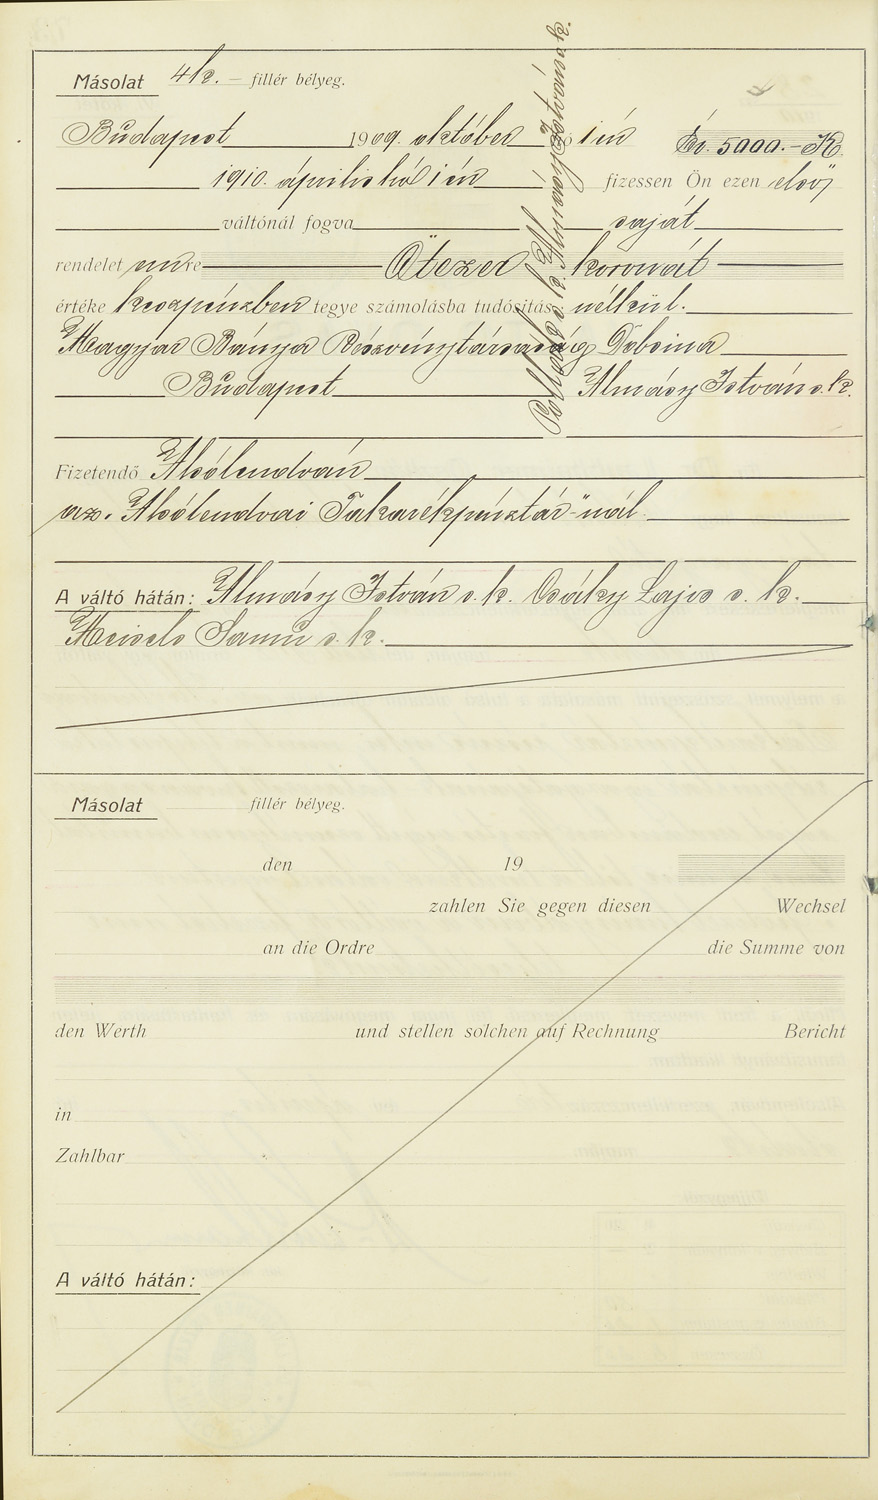 Másolat 4 k. – fillér bélyeg.
Budapest 1909. október hó 1 én Ér. 5000.– K
1910. április hó 1 én fizessen Ön ezen első
váltónál fogva saját
rendelet emre Ötezer koronát
értéke készpénzben tegye számolásba tudósítás nélkül.
Magyar Bánya Részvénytársaság Dobsina
Budapest Almásy István s. k.
Almásy István s. k.
Fizetendő Alsólendván
az „Alsólendvai Takarékpénztár"-nál.
A váltó hátán: Almásy István s. k. Csáky Lajos s. k.
Samu s. k.
Másolat fillér bélyeg.
den 19
zahlen Sie gegen diesen Wechsel
an die Ordre die Summe von
den Werth und stellen solchen auf Rechnung Bericht
in
Zahlbar
A váltó hátán: